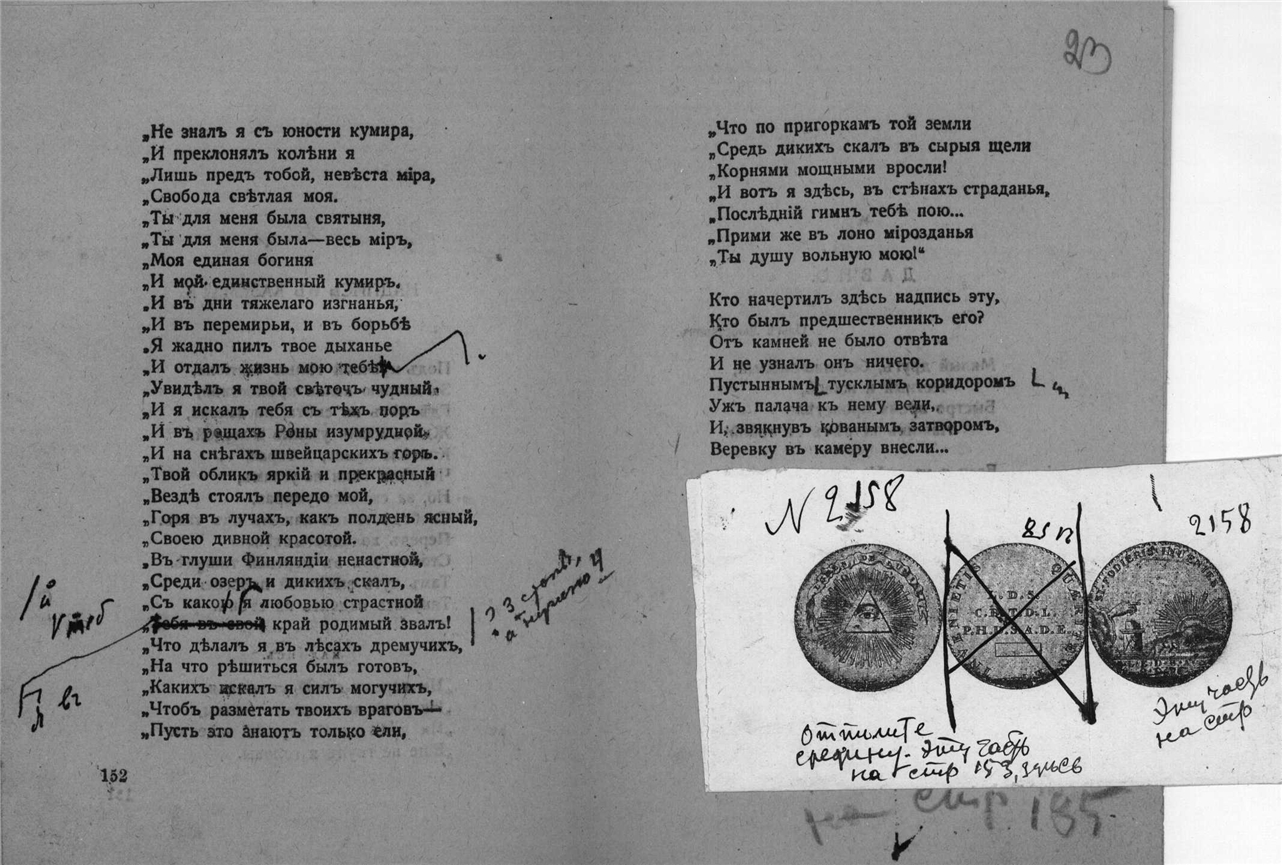 23
„Не зналъ я съ юности кумира,
„И преклонялъ колѣни я
„Лишь предъ тобой, невѣста міра,
„Свобода свѣтлая моя.
„Ты для меня была святыня,
„Ты для меня была—весь міръ,
„Моя единая богиня
„И мой единственный кумиръ.
„И въ дни тяжелаго изгнанья,
„И въ перемирьи, и въ борьбѣ
„Я жадно пилъ твое дыханье
„И отдалъ жизнь мою тебѣ
„Увидѣлъ я твой свѣточъ чудный,
„И я искалъ тебя съ тѣхъ поръ
„И въ рощахъ Роны изумрудной,
„И на снѣгахъ швейцарскихъ горъ.
„Твой обликъ яркій и прекрасный
„Вездѣ стоялъ передо мой,
„Горя въ лучахъ, какъ полдень ясный,
„Своею дивной красотой.
„Въ глуши Финляндіи ненастной,
„Среди озеръ и дикихъ скалъ,
„Съ какою я любовью страстной
„Тебя въ свой край родимый звалъ!
„Что дѣлалъ я въ лѣсахъ дремучихъ,
„На что рѣшиться былъ готовъ,
„Какихъ искалъ я силъ могучихъ,
„Чтобъ разметать твоихъ враговъ—
„Пусть это знаютъ только ели,
въ
152
„Что по пригоркамъ той земли
„Средь дикихъ скалъ въ сырыя щели
„Корнями мощными вросли!
„И вотъ я здѣсь, въ стѣнахъ страданья,
„Послѣдній гимнъ тебѣ пою...
„Прими же въ лоно мірозданья
„Ты душу вольную мою!“
Кто начертилъ здѣсь надпись эту,
Кто былъ предшественникъ его?
Отъ камней не было отвѣта
И не узналъ онъ ничего.
Пустыннымъ тусклымъ коридоромъ
Ужъ палача къ нему вели,
И, звякнувъ кованымъ затворомъ,
Веревку въ камеру внесли...
N 2158
2158
INVENIETIS QUÆRITE
L.D.S.
C.E.T.D.L.
P.H.D.S.A.D.E.
средину. Эту часть
на стр 153, здесь
Эту часть
на стр
на стр 185